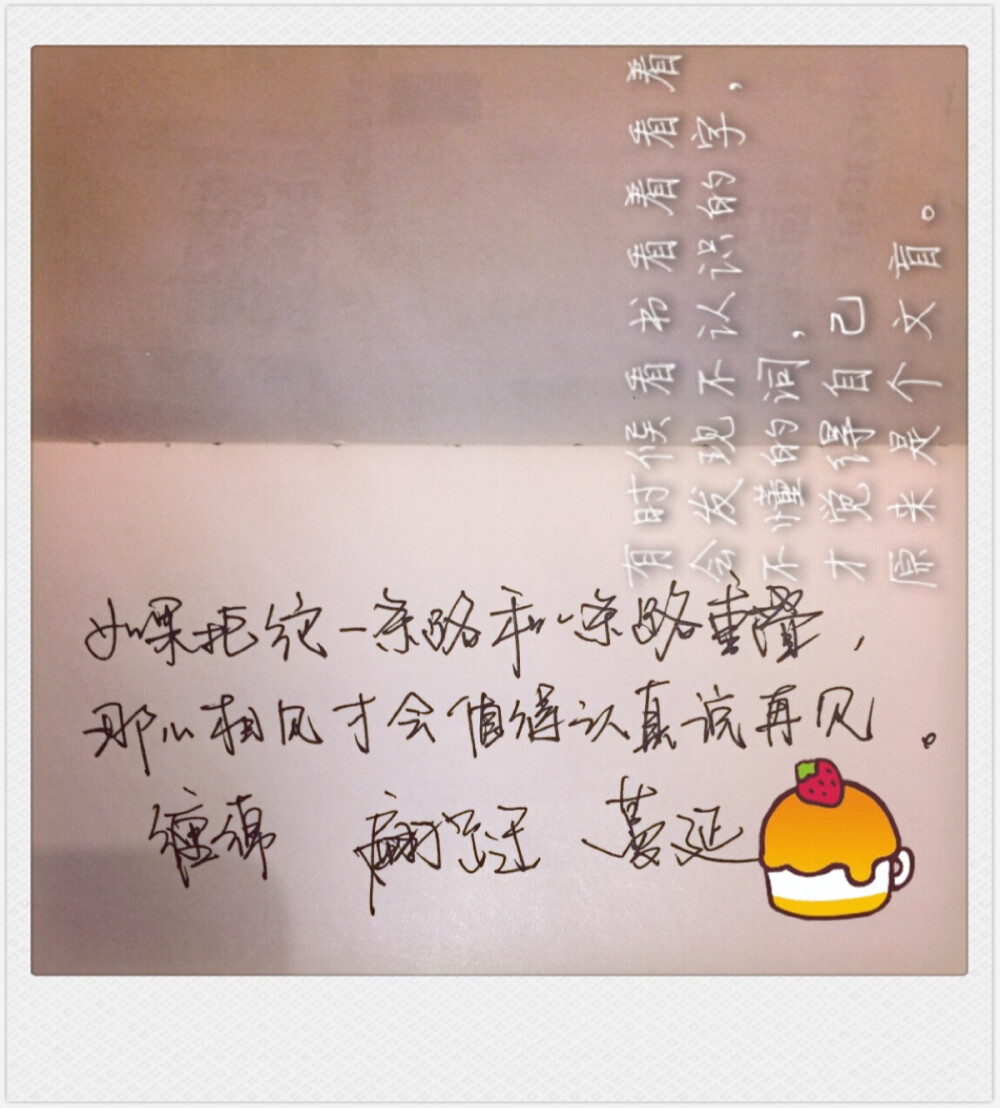 有时候看书看看看看
会发现不认识的字，
不懂的词，
才觉得自己
原来是个文盲。
如果拒绝一条路和一条路重叠，
那么相见才会值得认真说再见。
缠绵 蔓延